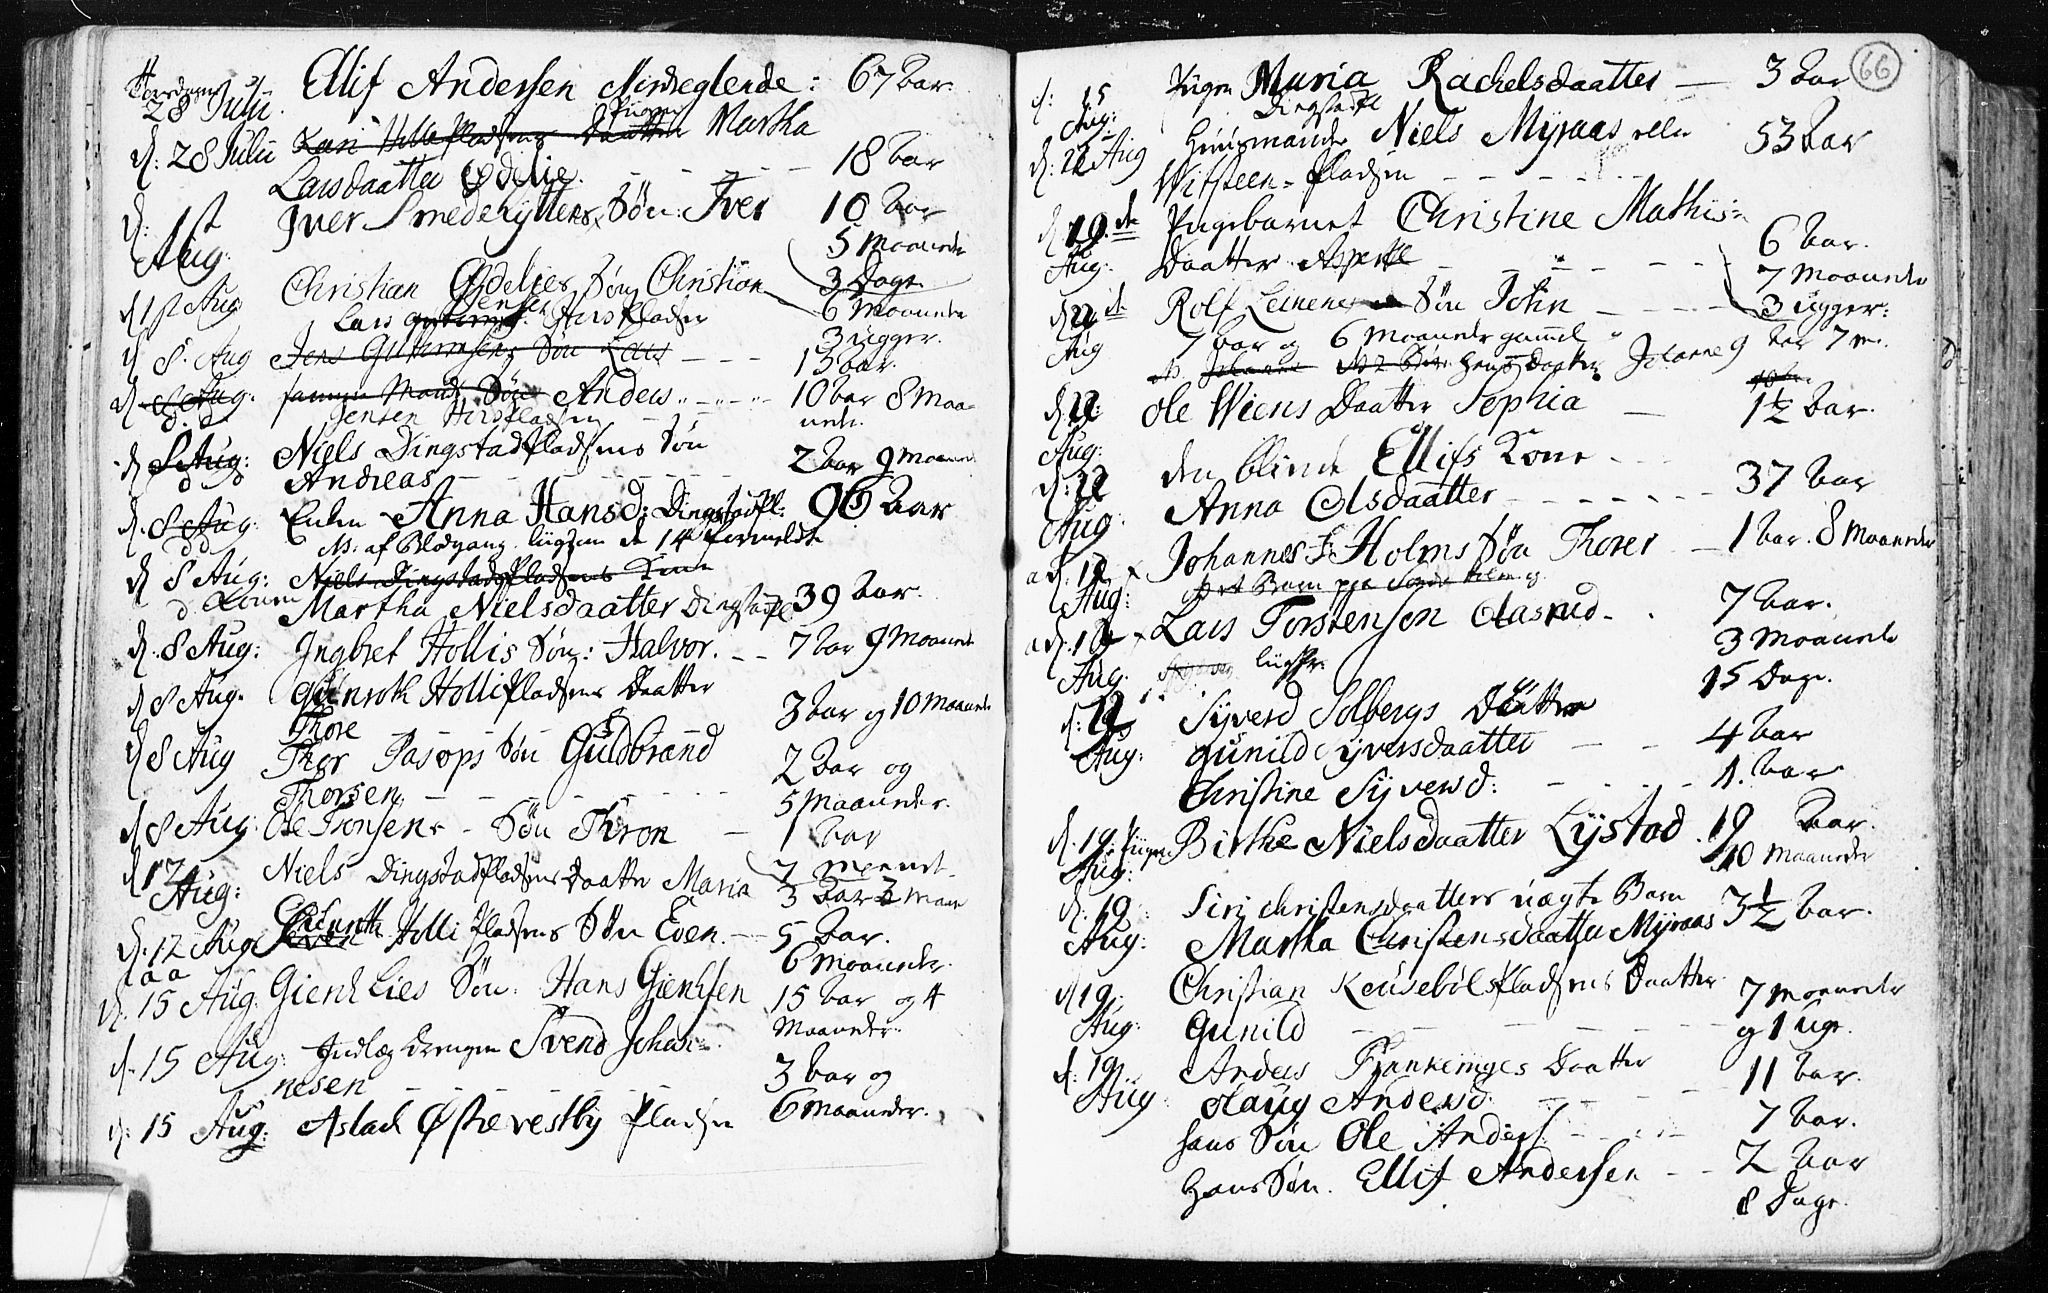 28 Julii. Ellif Andersen Nordreglende: 67 Aar.
Pigen
d: 28 Julii Kari Hilles Pladsens Daatter Martha
Larsdaatter Ødelie. - - - - 18 Aar
d: 1st Aug: Iver Smedehyttens Søn: Iver 10 Aar
5 Maaneder
3 Dage
d 1st Aug Christian Ødelies Søn Christian 6 Maaneder
3 uger.
Lars Jensen Hirspladsen
d 8. Aug Jens Gutormsens Søn Lars - - - 13 Aar.
d 8 Aug. samme Mands Søn Anders - - - 10 Aar 8 Maa-
d. d Jensen Hirspladsen neder.
d 8 Aug: Niels Dingstadpladsens Søn
d d Andreas - - - - - 2 Aar 9 Maaned
d. 8 Aug: Enken Anna Hansd: Dingstadpl: 96 Aar
d d NB: af Blodgang. liigesom de 14 formeldte
d 8 Aug: Niels Dingstadpladsens Kone
d Konen Martha Nielsdaatter Dingstadpl 39 Aar.
d. 8 Aug: Ingbret Hollis Søn: Halvor. - - 7 Aar 9 Maaneder
d 8 Aug. Gunroth Hollipladsens Daatter
Thore 3 Aar og 10 Maaneder
d 8 Aug Thor Pasops Søn Guldbrand
Thorsen, - - - - - 2 Aar og
5 Maaneder.
d 8 Aug: Ole Tronsens - Søn Thron - 1 Aar
7 Maaned
d 17 Aug: Niels Dingstadpladsens Daatter Maria 3 Aar 3 Maan
d. 12 Aug Gunroth Holli Pladsens Søn Even. - 5 Aar.
6 Maaneder.
d. 15 Aug. Gienh Lies Søn: Hans Gienhsen 15 Aar og 4
Maaneder.
d. 15 Aug: Indlæg drengen Svend Johan-
nesen - - - - - 3 Aar og
d: 15 Aug: Aslach Østrevestby Pladsen 6 Maaneder.
66
d: 15 Aug: Pigen Maria Rachelsdaatter - 3 Aar
Dingstadpl
d: 22 Aug Huusmanden Niels Myraas eller
Witsteen-Pladsen - - - - - 53 Aar
d 19de Aug: Pigebarnet Christine Mathis-
Daatter Asperkl - - - - - 6 Aar.
7 Maaneder
d 22de Aug Rolf Leinenes Søn John - - - - 3 uger:
7 Aar og 6 Maaneder gammel
NB. Hans Daatter Johanne 9 Aar 7 m.
d: 22 Aug: Ole Wiens Daatter Sophia - 1½ Aar.
d: 22 Aug den blinde Ellifs Kone - - -
Anna Olsdaatter - - - - - 37 Aar
d. 12 Aug: Johannes Holms Søn Thorer - 1 Aar. 8 Maaneder
d: 12 Aug. Lars Torstensen Aasrud - . 7 Aar.
3 Maaneder
15 Dage.
d: 22 Aug: Syverd Solbergs Døttre
Gunild Syversdaatter - - 4 Aar
Christine Syversd: - - - - 1. Aar
d. 19. Aug: Pigen Birthe Nielsdaatter Lystad. 19 Aar.
10 Maaneder
d. 19 Aug: Siri Christensdaatters uægte Barn
Martha Christensdaatter Myraas 3½ Aar.
d 19. Aug: Christian Keusebølspladsens Daatter
Gunild - - - - - 7 Maaneder
og 1 uge.
d: 19 Aug: Anders Frankeriges Daatter
Olaug Andersd. - - - - 11 Aar.
hans Søn Ole Anders: - - - - 7 Aar.
Hans Søn. Ellif Andersen - - 2 Aar
8 Dage.